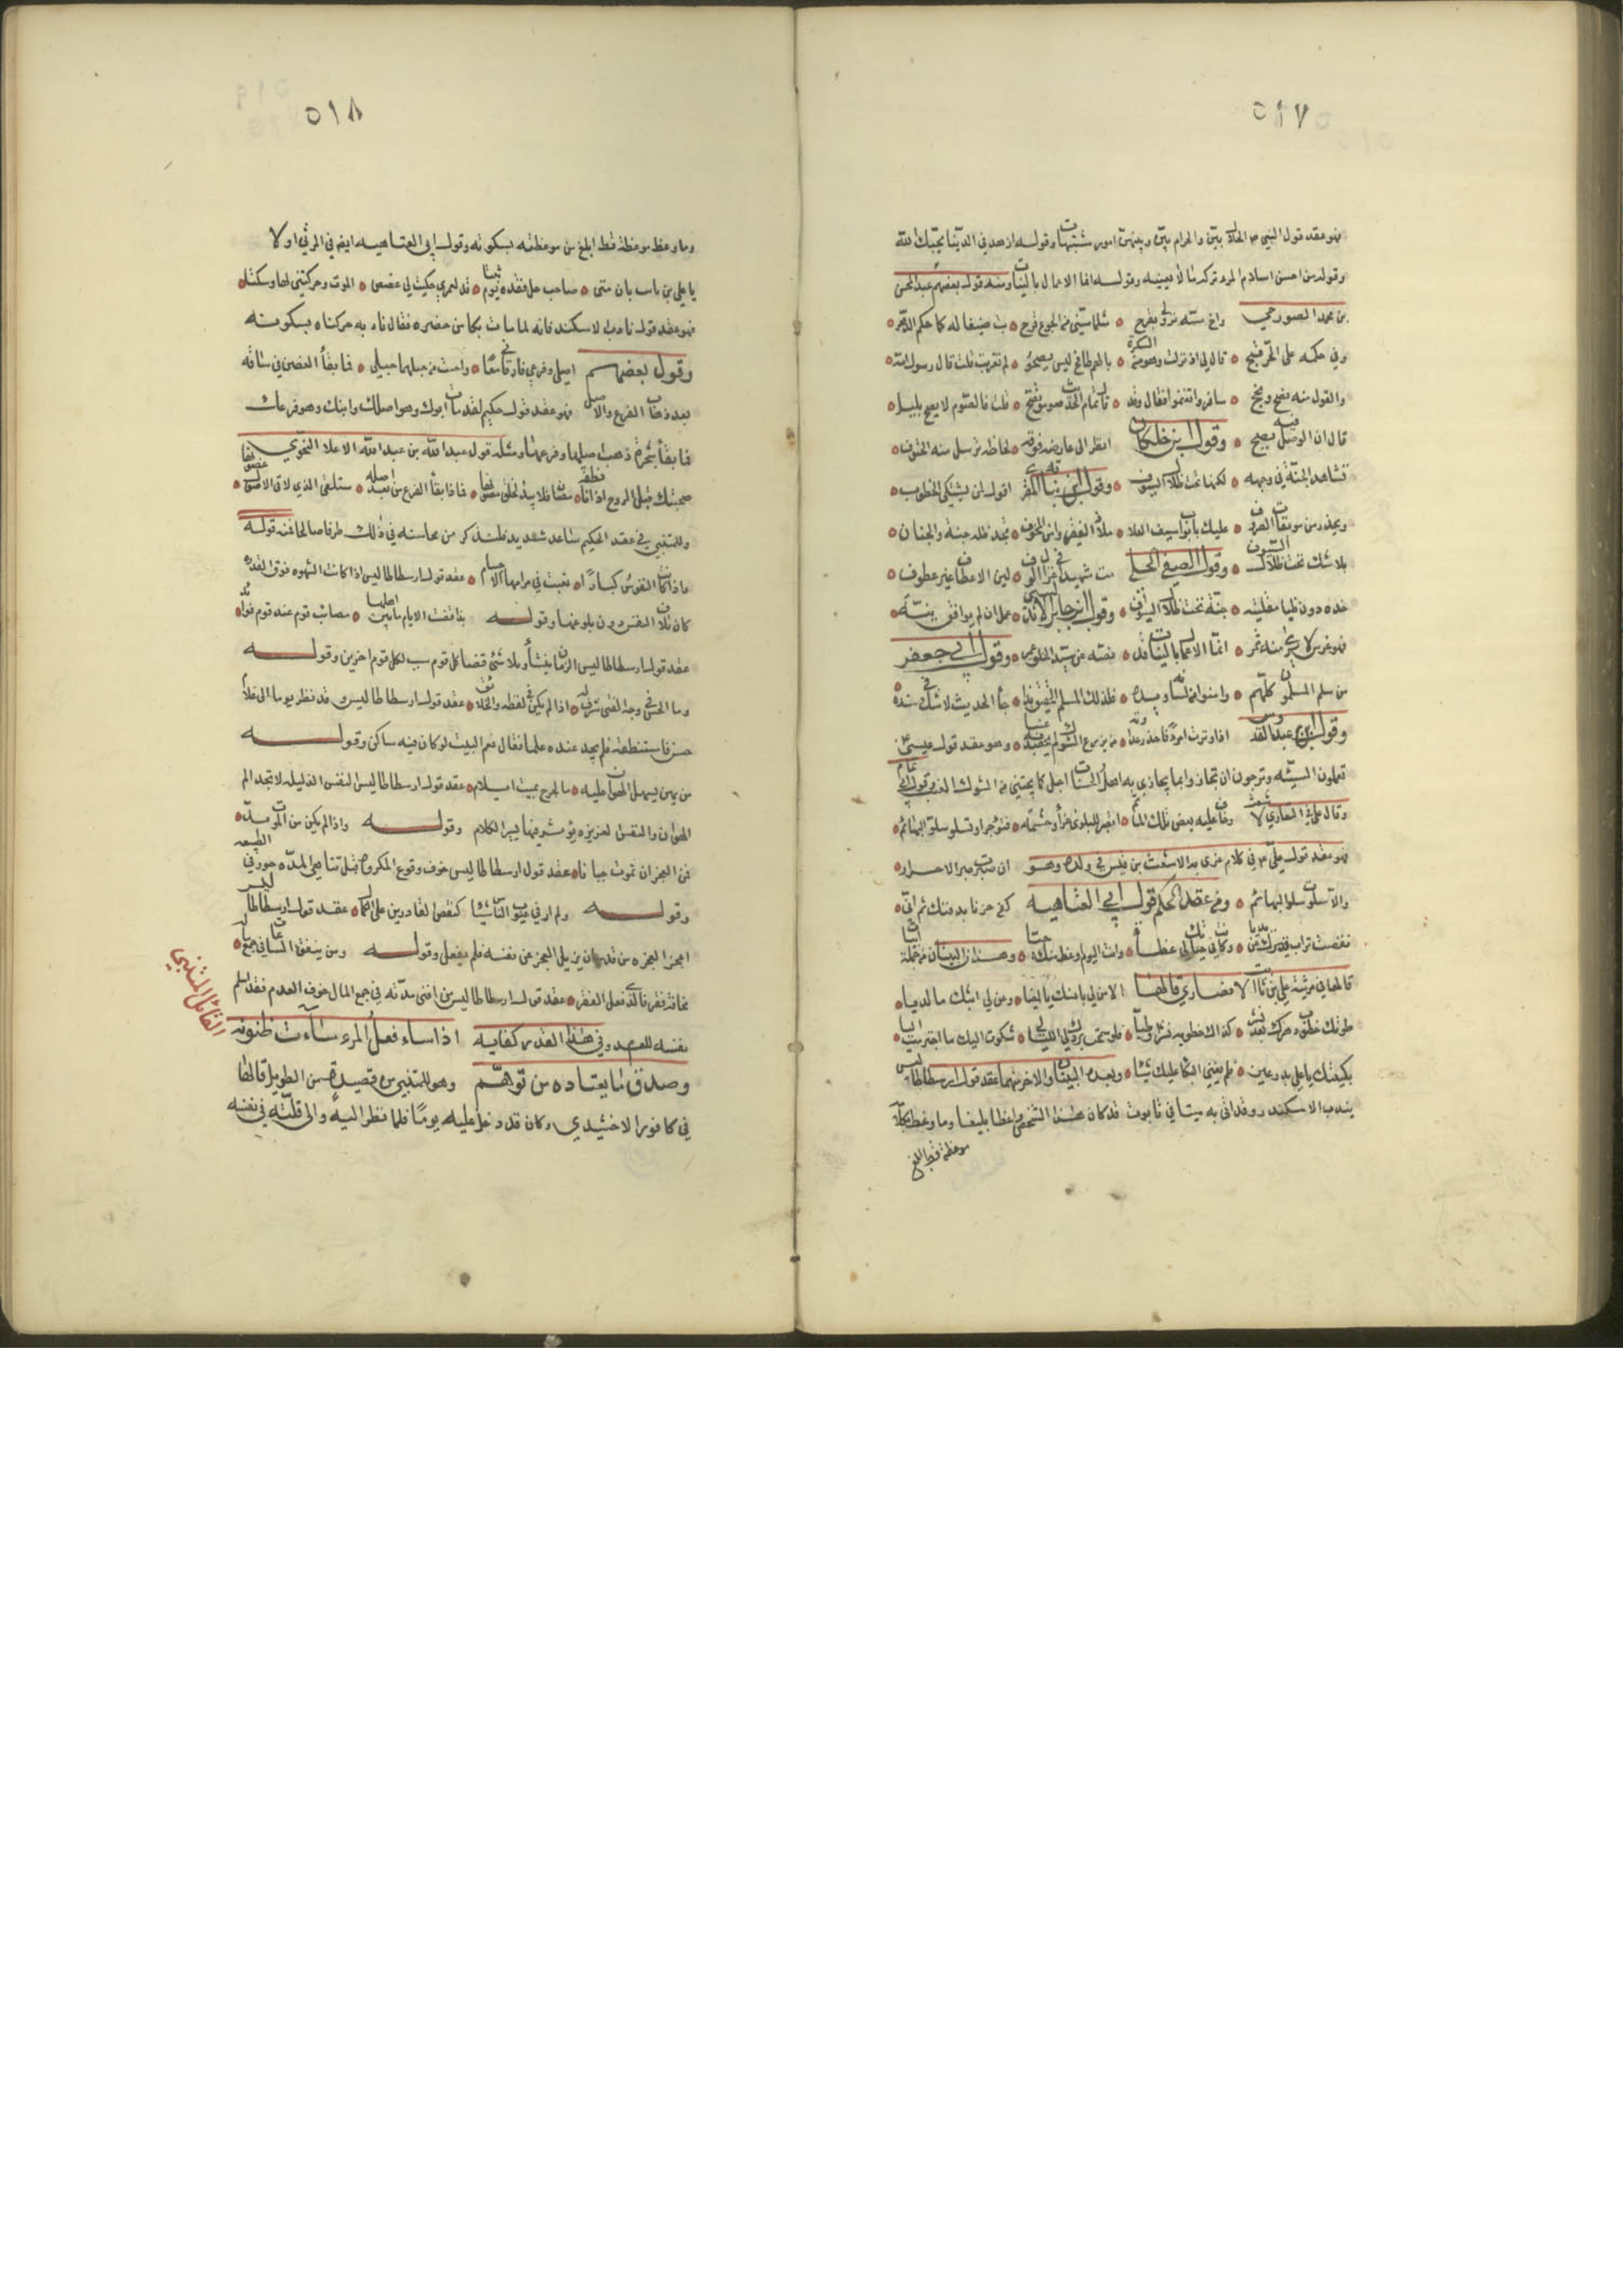 ٥١٧
فهو عقد قول النبي ص الحلال بيّن والحرام بيّن وبينهن امور مشتبهات وقوله ازهد في الدنيا يحبك الله
وقوله من احسن اسلام المرء تركه ما لا يعنيه وقوله انما الاعمال بالنيات ومنه قول بعضهم عبد المحسن
بن محمد الصوري واخ مسّه نزولي بقرح ه مثلما مسّني من الجوع قرح ه بت ضيفا له كما حكم الدهر ه
وفي حكمه على الحرّ قبح ه قال لي اذ نزلت وهو من السكرة بالهم طافح ليس يصحو ه لم تغربت قلت قال رسول الله ه
والقول منه نصح ونجح ه سافروا تغنموا فقال وقد ه قال تمام الحديث صوموا تصحوا ه قلت فالصوم لا يصح بليل ه
قال ان الوصل فيه يصح ه وقول ابن خلكان انظر الى عارضه فوقه ه لحاظه ترسل منه الحتوف ه
تشاهد الجنّة في وجهه ه لكنها تحت ظلال السيوف ه وقول ابن نباتة المقري اقول لمن يشتكي الخطوب ه
ويحذر من موبقات الصروف ه عليك بابواب سيف العلا ه ملاذ الفقير وامن المخوف ه تجد ظله جنة والجنان ه
بلا شك تحت ظلال السيوف ه وقول الصفي الحلي مت شهيدا في غزال ه لين الاعطاف غير عطوف ه
خده دون ظبا مقلته ه جنّة تحت ظلال السيوف ه وقول ابن جابر الاندلسي عمل ان لم يوافق نيّة ه
فهو غرس لا يرى منه ثمر ه انما الاعمال بالنيات قد ه نصّه عن سيد الخلق عمر ه وقول ابي جعفر
من سلم المسلمون كلهم ه وامنوا من لسانه ويده ه فذلك المسلم الحقيق بذا ه جأ الحديث لا شك في سنده ه
وقول ابن عبد القدوس اذا وترت امرءً فاحذر عداوته ه من يزرع الشوك لم يحصد به عنبا ه وهو عقد قول عيسى ع
تعملون السيّئه وترجون ان تجازوا بما يجازي به اهل الحسنات اجل كما يجتنى من الشوك العنب وقول ابي تمام
وقال علي في التعازي لاشعث وخاف عليه بعض تلك المآثم ه اتصبر للبلوى عزأ وحشمة ه فتؤجر او تسلو سلو البهائم ه
فهو عقد قول علي ع م في كلام عزى به الاشعث بن قيس في ولده وهو ان صبرت صبر الاحرار ه
والا سلوت سلو البهائم ه ومن عقد الحكم قول ابي العتاهيه كفى حزنا بدفنك ثم اني ه
نفضت تراب قبرك عن يديا ه وكانت في حياتك لي عظات ه وانت اليوم اوعظ منك حيا ه وهذان البيتان من جملة ابيات
قالها في مرثية علي بن ثابت الانصاري قالها الا من لي بانسك يا اخيا ه ومن لي ابثك ما لديا ه
طوتك خطوب دهرك بعد نشر ه كذاك خطوبه نشرا وطيا ه فلو نشرت يردك لي الليالي ه شكوت اليك ما اجترمت اليا ه
بكيتك يا علي بدر عيني ه فلم يغني البكا عليك شيا ه وبعده البيتان والاخر منهما عقد قول ارسطاطاليس
يندب الاسكندر وقد اتي به ميتا في تابوت قد كان هذا الشخص واعظا بليغا وما وعظ بجملة
موعظة قط ابلغ
٥١٨
وما وعظ موعظة قط ابلغ من موعظته بسكوته وقول ابي العتاهيه ايضا في المرثي اولا
يا علي بن ثابت بان مني ه صاحب جل فقده يوم بنتا ه قد لعمري حكيت لي غصص ه الموت وحركتني لها وسكنتا ه
فهو عقد قول نادب الاسكندر فانه لما مات بكا من حضره فقال نادبه حركناه بسكونه
وقول بعضهم اصلي وفرعي فارقاني معًا ه واجتث من حبلهما حبلي ه فما بقأ الغصن في ساقه
بعد ذهاب الفرع والاصل فهو عقد قول حكيم لقد مات ابوك وهو اصلك وابنك وهو فرعك
فما بقأ شجرة ذهب اصلها وفرعها ومثله قول عبد الله بن عبد الله الاعلا النحوي
وللمتنبي في عقد الحكم ساعد شديد فلنذكر من محاسنه في ذلك طرفا صالحا فمنه قوله
واذا كانت النفوس كبارًا ه تعبت في مرامها الاجسام ه عقد قول ارسطاطاليس اذا كانت الشهوه فوق القدره
كان تلاف النفس دون بلوغها وقوله بذا قضت الايام ما بين اهلها ه مصائب قوم عند قوم فوائد ه
عقد قول ارسطاطاليس الزمان ينشأ ويلاشى ففضائل قوم سبب لكل قوم اخرين وقوله
وما الحسن في وجه الفتى شرف له ه اذا لم يكن في لفظه والخلائق ه عقد قول ارسطاطاليس وقد نظر يوما الى غلام
حسن فاستنطقه فلم يجد عنده علما فقال نعم البيت لو كان فيه ساكن وقوله
من يهن يسهل الهوان عليه ه ما لجرح بميت ايلام ه عقد قول ارسطاطاليس النفس الذليله لا تجد الم
الهوان والنفس العزيزه يؤثر فيها يسير الكلام وقوله واذا لم يكن من الموت بدّ ه
فمن العجز ان تموت جبانا ه عقد قول ارسطاطاليس خوف وقوع المكروه قبل تناهي المدّه خور في الطبيعه
وقوله ولم ار في عيوب الناس شيئا كنقص القادرين على التمام ه عقد قول ارسطاطاليس
اعجز العجزه من قدر ان يزيل العجز عن نفسه فلم يفعل وقوله ومن ينفق الساعات في جمع ماله ه
مخافة فقر فالذي فعل الفقر ه عقد قول ارسطاطاليس من افنى مدّته في جمع المال خوف العدم فقد اسلم
نفسه للعدم وفي هذا القدر كفايه اذا ساء فعل المرء ساءت ظنونه
وصدق ما يعتاده من توهّم وهو للمتنبي من قصيدة من الطويل قالها
في كافور الاخشيدي وكان قد دخل عليه يومًا فلما نظر اليه والى قلّته في نفسه
القائل المتنبي